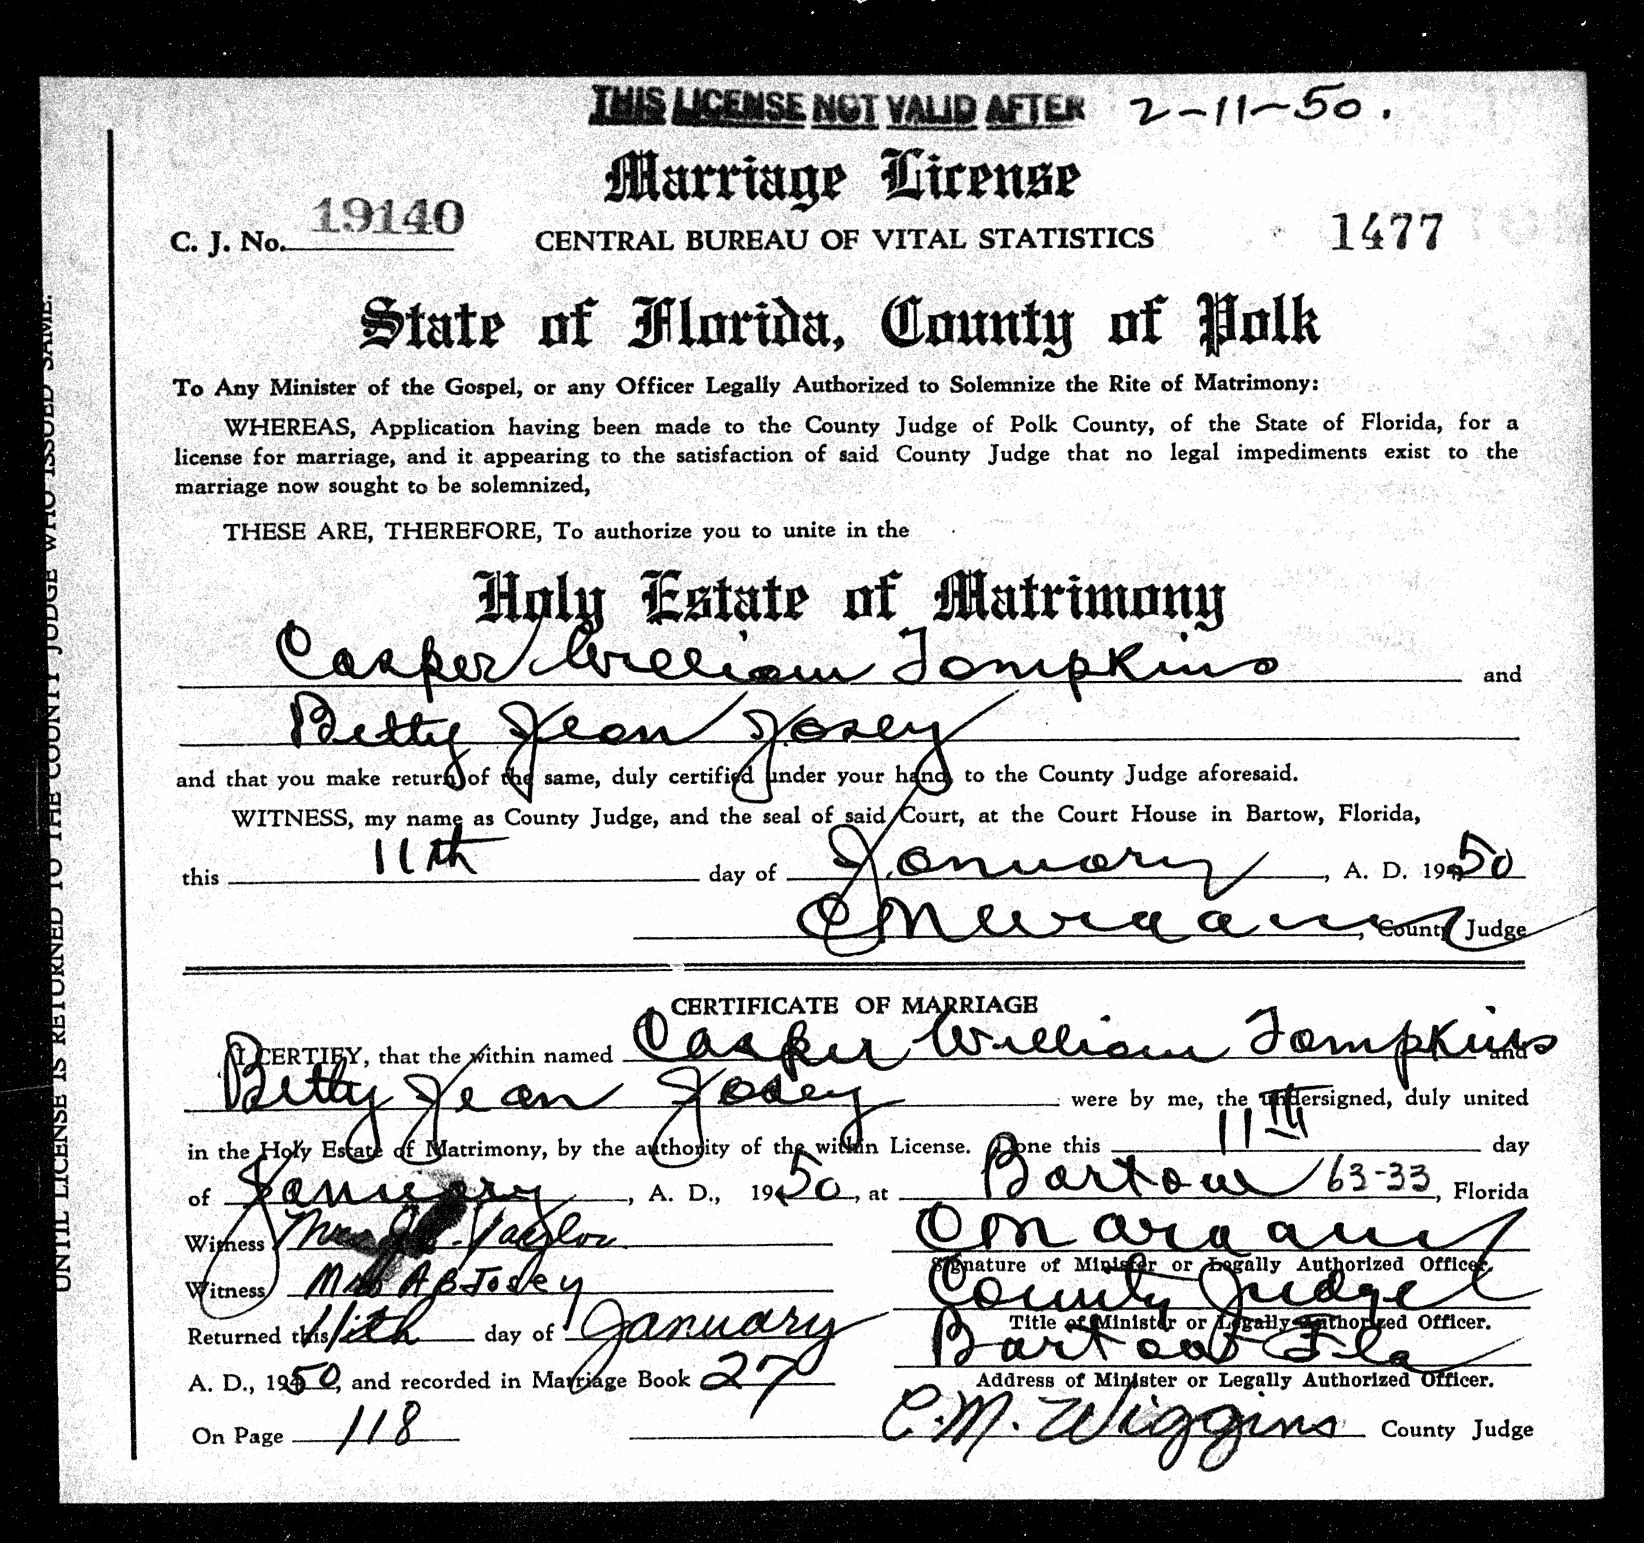 THIS LICENSE NOT VALID AFTER 2-11-50.
Marriage License
C. J. No. 19140 CENTRAL BUREAU OF VITAL STATISTICS 1477
State of Florida, County of Polk
To Any Minister of the Gospel, or any Officer Legally Authorized to Solemnize the Rite of Matrimony:
WHEREAS, Application having been made to the County Judge of Polk County, of the State of Florida, for a
license for marriage, and it appearing to the satisfaction of said County Judge that no legal impediments exist to the
marriage now sought to be solemnized,
THESE ARE, THEREFORE, To authorize you to unite in the
Holy Estate of Matrimony
Casper William Tompkins and
Betty Jean Josey
and that you make return of the same, duly certified under your hand, to the County Judge aforesaid.
WITNESS, my name as County Judge, and the seal of said Court, at the Court House in Bartow, Florida,
this 11th day of January, A. D. 1950
, County Judge
CERTIFICATE OF MARRIAGE
I CERTIFY, that the within named Casper William Tompkins and
Betty Jean Josey were by me, the undersigned, duly united
in the Holy Estate of Matrimony, by the authority of the within License. Done this 11th day
of January, A. D., 1950, at Bartow 63-33, Florida
Witness Mrs Taylor
Signature of Minister or Legally Authorized Officer.
Witness Mrs A B Josey County Judge
Title of Minister or Legally Authorized Officer.
Returned this 11th day of January Bartow Fla
A. D., 1950, and recorded in Marriage Book 27 Address of Minister or Legally Authorized Officer.
On Page 118 C. M. Wiggins County Judge
UNTIL LICENSE IS RETURNED TO THE COUNTY JUDGE WHO ISSUED SAME.